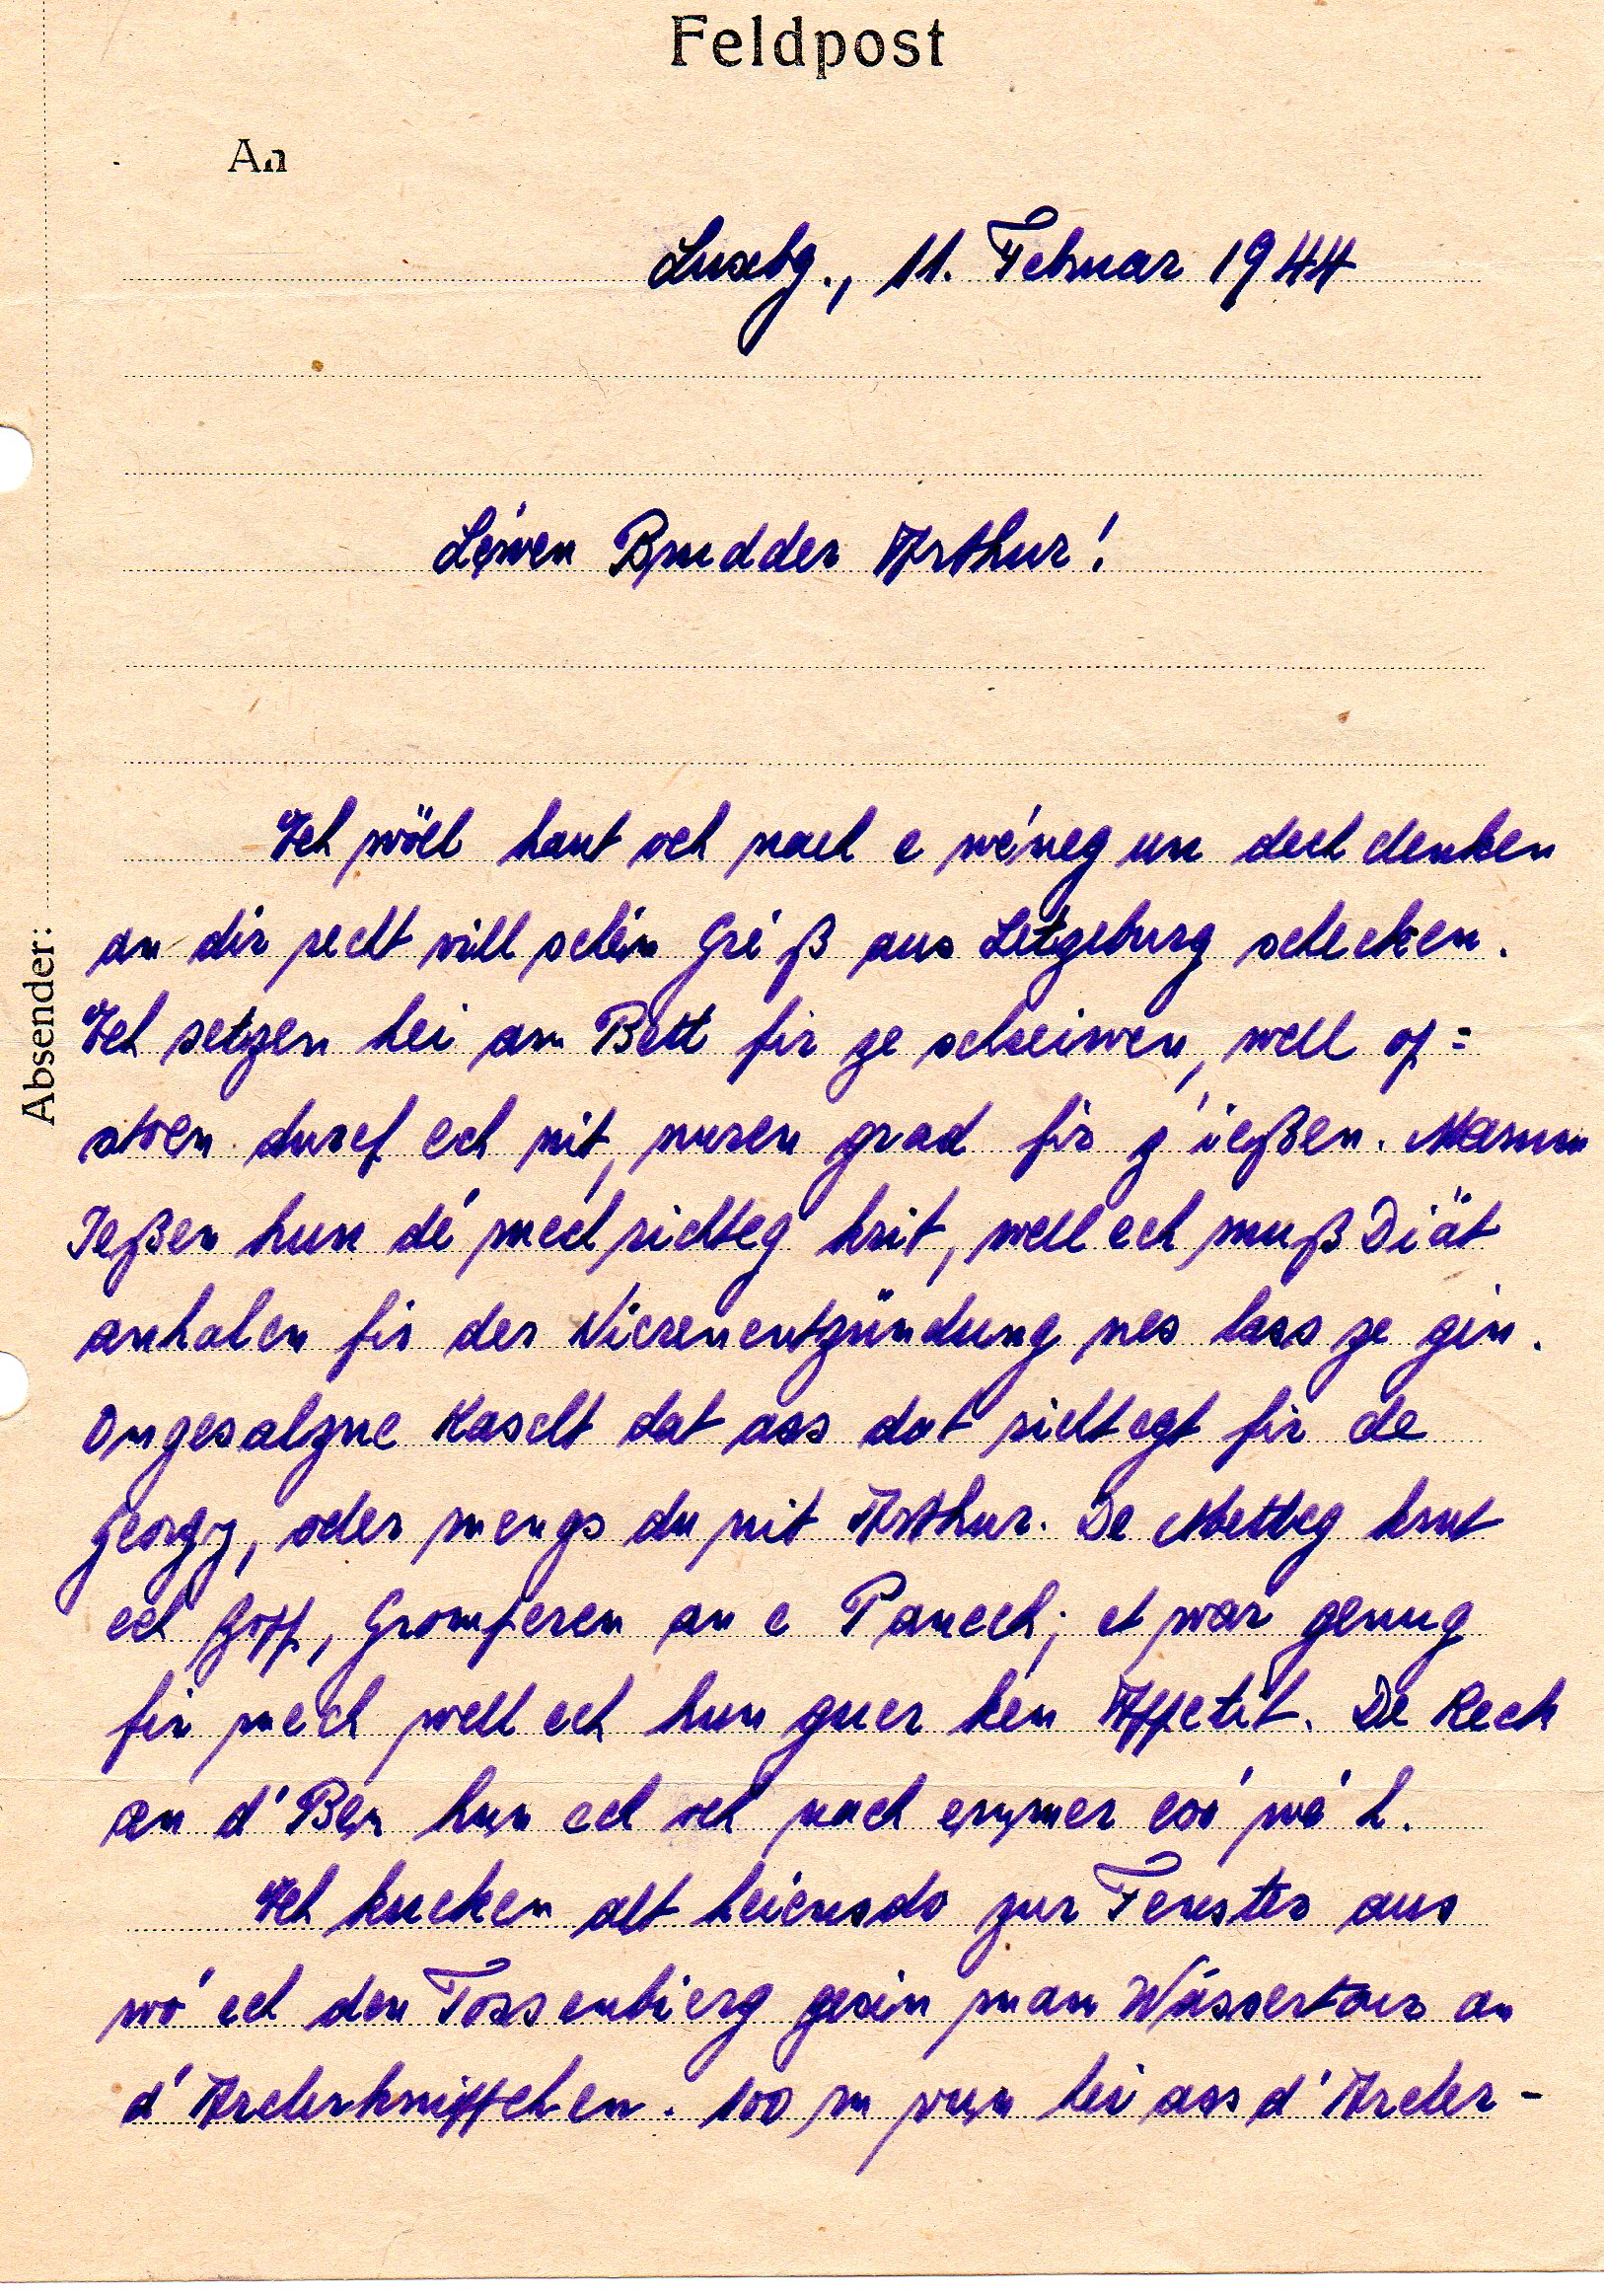 Feldpost
An
Absender:
Luxbg., 11. Februar 1944
Léiwen Brudder Arthur!
Ech wöll haut och nach e wéneg un dech denken
an dir recht vill schéin Gréß aus Letzeburg schecken.
Ech setzen hei am Bett fir ze schreiwen, well op=
stoen duref ech nit, nuren grad fir z'ießen. Mam
Ießen hun dé mech richteg krit, well ech muß Diät
anhalen fir der Nierenentzündung nes lass ze gin.
Ongesalzne Kascht dat ass dat richtegt fir de
Georgy, oder mengs du nit Arthur. De Metteg krut
ech Zopp, Gromperen an e Panech; et war genug
fir mech well ech hun guer ken Appetit. De Reck
an d'Ben hun ech och nach emmer esó wé h.
Ech kucken alt heiansdo zur Fenster aus
wó ech den Tossenbierg gesin mam Wássertour an
d'Arelerknippchen. 100 m vun hei ass d'Areler-